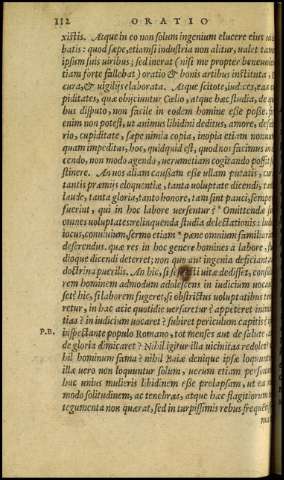 112 ORATIO
xistis. Atque in eo non solum ingenium elucere eius
batis: quod sæpe, etiamsi industria non alitur, ualet tamen
ipsum suis uiribus; sed inerat (nisi me propter beneuolen
tiam forte fallebat) oratio & bonis artibus instituta,
cura, & uigilijs elaborata. Atque scitote, iudices, eas
piditates, quæ obijciuntur Cœlio, atque hæc studia, de
bus disputo, non facile in eodem homine esse posse.
enim non potest, ut animus libidini deditus, amore, de
rio, cupiditate, sæpe nimia copia, inopia etiam nonn
quam impeditus, hoc, quidquid est, quod nos facimus in
cendo, non modo agendo, uerumetiam cogitando possit
stinere. An uos aliam caussam esse ullam putatis, cur
tantis præmijs eloquentiæ, tanta uoluptate dicendi, tanta
laude, tanta gloria, tanto honore, tam sint pauci, semper
fuerint, qui in hoc labore uersentur? * Omittendæ
omnes uoluptates: relinquenda studia delectationis: lud
iocus, conuiuium, sermo etiam * pæne omnium familiariu
deserendus. quæ res in hoc genere homines à labore,
dioque dicendi deterret; non quo aut ingenia deficiant
doctrina puerilis. An hic, si se isti uitæ dedisset, consu
rem hominem admodum adolescens in iudicium uocas
set? hic, si laborem fugeret, si obstrictus uoluptatibus te
retur, in hac acie quotidie uersaretur? appeteret inim
tias? in iudicium uocaret? subiret periculum capitis?
P.D. inspectante populo Romano, tot menses aut de salute
de gloria dimicaret? Nihil igitur illa uicinitas redolet?
hil hominum fama? nihil Baiæ denique ipsæ loquun
illæ uero non loquuntur solum, uerum etiam persona
huc unius mulieris libidinem esse prolapsam, ut ea
modo solitudinem, ac tenebras, atque hæc flagitiorum
tegumenta non quærat, sed in turpissimis rebus frequen